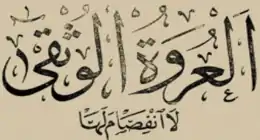 العُروَة الوُثقى
لَا انْفِصَامَ لَهَا